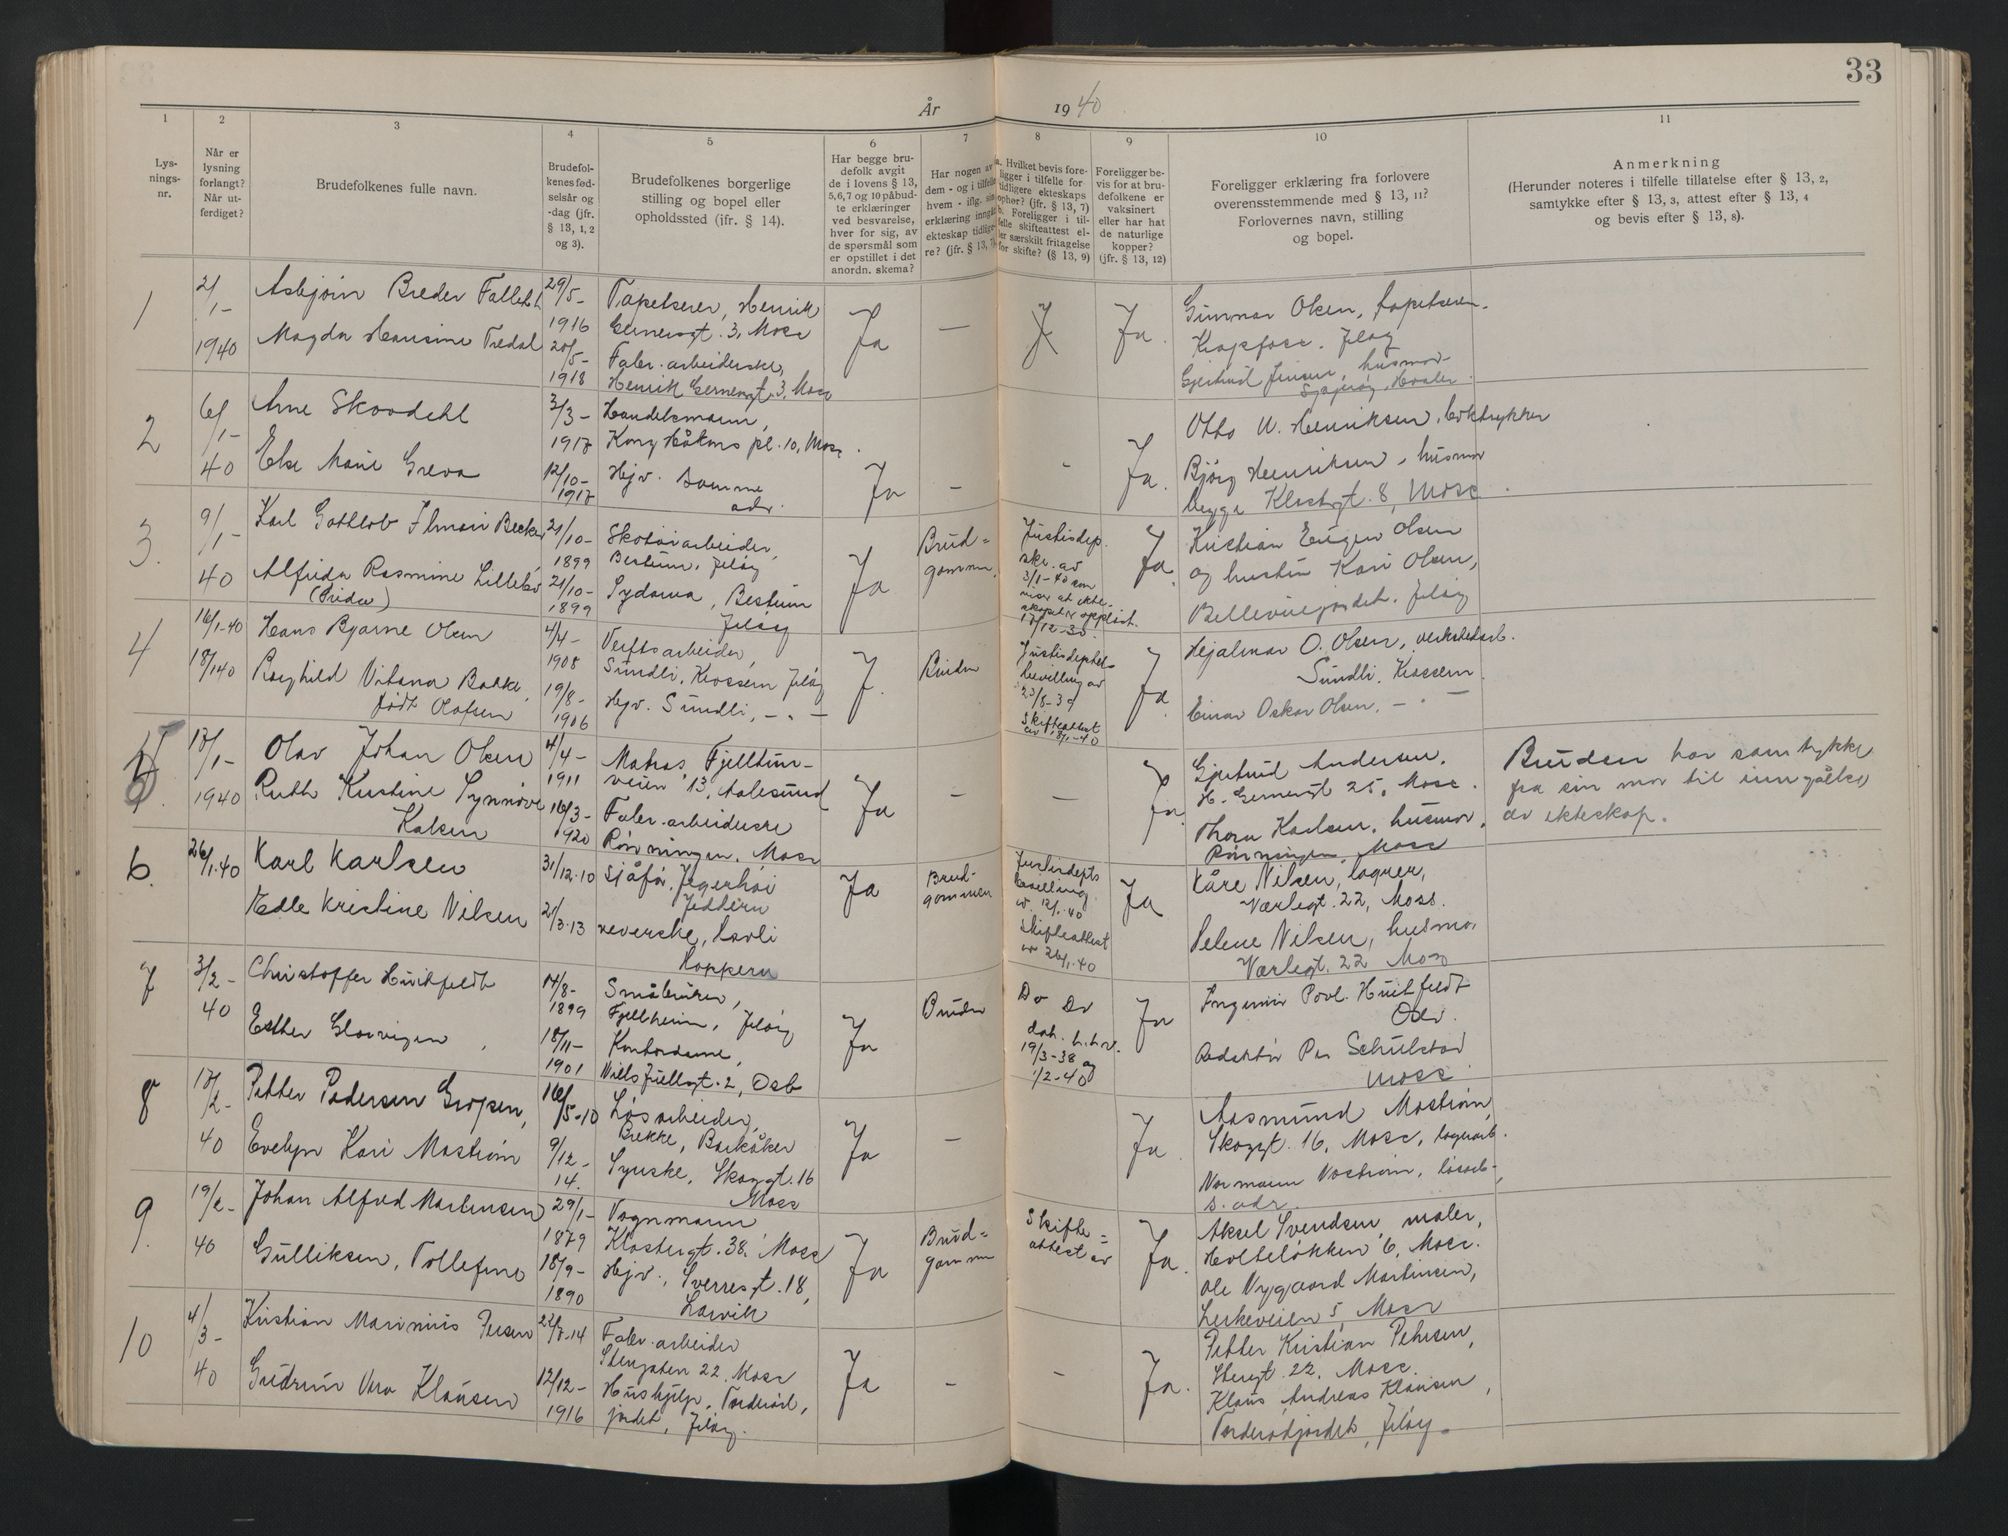 33
År 1940
1 2 3 4 5 6 7 8 9 10 11
Lys-
nings-
nr.
Når er
lysning
forlangt?
Når ut-
ferdiget?
Brudefolkenes fulle navn.
Brudefol-
kenes fød-
selsår og
-dag (jfr.
§ 13, 1, 2
og 3).
Brudefolkenes borgerlige
stilling og bopel eller
opholdssted (ifr. § 14).
Har begge bru-
defolk avgit
de i lovens § 13,
5,6,7 og 10 påbud-
te erklæringer
ved besvarelse,
hver for sig, av
de spørsmål som
er opstillet i det
anordn. skema?
Har nogen av
dem - og i tilfelle
hvem - iflg. sin
erklæring inngått
ekteskap tidlige-
re? (jfr. § 13, 7).
a. Hvilket bevis fore-
ligger i tilfelle for
tidligere ekteskaps
ophør? (jfr. § 13, 7)
b. Foreligger i til-
felle skifteattest el-
ler særskilt fritagelse
for skifte? (§ 13, 9)
Foreligger be-
vis for at bru-
defolkene er
vaksinert
eller har hat
de naturlige
kopper?
(jfr. § 13, 12)
Foreligger erklæring fra forlovere
overensstemmende med § 13, 11?
Forlovernes navn, stilling
og bopel.
Anmerkning
(Herunder noteres i tilfelle tillatelse efter § 13, 2,
samtykke efter § 13, 3, attest efter § 13, 4
og bevis efter § 13, 8).
1
2/1-
1940
Asbjørn Breder
Magda Hansine Tredal
29/5-
1916
20/5-
1918
Tapetserer, Henrik
Gernersgt. 3, Moss
Fabr. arbeiderske,
Henrik Gernersgt. 3, Moss
Ja
—
Ja.
Gunnar Olsen, tapetserer.
Krapfoss. Jeløy
Gjertrud Jensen, husmor
Hvaler.
2
6/1-
40
Arne Skovdahl
Else Marie Greva
3/3-
1917
12/10-
1917
Handelsmann,
Kong Håkons pl. 10, Moss.
Hjv. samme
adr.
Ja
—
-
Ja.
Otto W. Henriksen, boktrykker
Bjørg Henriksen, husmor
begge Klostergt. 8, Moss.
3.
9/1-
40
Karl Gottlob Ilmari Becker
Alfrida Rasmine Lillebø
(Frida)
21/10-
1899
21/10-
1899
Skotøiarbeider,
Bestum, Jeløy
Sydama, Bestum
Jeløy
Ja
Brud=
gommen.
Justisdep.
skr. av
3/1-40 som
viser at ekte-
skapet er oppløst.
17/12-30.
Ja
Kristian Eugen Olsen
og hustru Kari Olsen,
Bellevuejordet. Jeløy
4
16/1-40
18/1 40
Hans Bjarne Olsen
Raghild Vitana Bakke,
født Olafsen
4/4-
1908
19/8-
1906
Verftsarbeider,
Sundli, Krossern Jeløy
Hjv. Sundli, - " -
J.
Bruden
Justisdeptet
bevilling av
23/8-39
Skifteattest
av 18/1-40
Ja
Hjalmar O. Olsen, verkstedarb.
Sundli Krossern.
Einar Oskar Olsen. - " -
5
17/1-
1940
Olav Johan Olsen
Ruth Kristine Synnøve
Karlsen
4/4-
1911
16/3-
1920
Matros Fjelltun-
veien 13, Aalesund
Fabr. arbeiderske
Rønningen, Moss
Ja
—
—
Ja
Gjertrud Andersen.
H. Gernersgt 25, Moss.
Thora Karlsen, husmor,
Rønningen, Moss
Bruden har samtykke
fra sin mor til inngåelse
av ekteskap.
6.
26/1.40
Karl Karlsen
Edle Kristine Nilsen
31/12.10
21/3.13
Sjåfør, Jegerhøi
veverske, Havli
Hoppern
Ja
Brud-
gommen
Justisdepts
bevilling
av 12/1.40
Skifteattest
av 26/1.40
Ja
Kåre Nilsen, lagrer,
Værlegt. 22, Moss.
Helene Nilsen, husmor,
Værlegt. 22 Moss
7
3/2-
40
Christoffer Huitfeldt
Esther Glorvigen
14/8-
1899
18/11-
1901
Småbruker,
Fjellheim, Jeløy
Kontordame,
Niels Juelsgt. 2, Oslo
Ja
Bruden
Do Do
dat. h.h.v.
19/3-38
og
1/2-40
Ja
Ingeniør Povl. Huitfeldt
Oslo.
Redaktør Per Schulstad
Moss.
8
17/2-
40
Petter Pedersen Gropen,
Evelyn Kari Mostrøm
16/5-10
9/12-
14.
Løsarbeider,
Brekke, Barkåker
Syerske, Skoggt. 16
Moss
Ja
—
Ja
Aasmund Mostrøm
Skoggt. 16, Moss, lagerarb.
Normann Mostrøm, løsarb.,
s. adr.
9.
19/2-
40
Johan Alfred Martinsen
Gulliksen, Tollefine
29/1-
1879
18/9-
1890
Vognmann
Klostergt. 38, Moss
Hjv., Sverresgt. 18,
Larvik
Ja
Brud-
gommen
Skifte=
attest av
Ja.
Aksel Svendsen, maler,
Holteløkken 6, Moss.
Ole Nygaard Martinsen,
Lerkeveien 5, Moss
10
4/3-
40
Kristian Marinius
Gudrun Vera Klausen
22/7-14
12/12-
1916
Fabr. arbeider
Stengaten 22, Moss
Hushjelp, Torderød,
jordet, Jeløy.
Ja
-
-
Ja.
Petter Kristian Petersen,
Stengt. 22, Moss.
Klaus Andreas Klausen,
Torderødjordet, Jeløy.